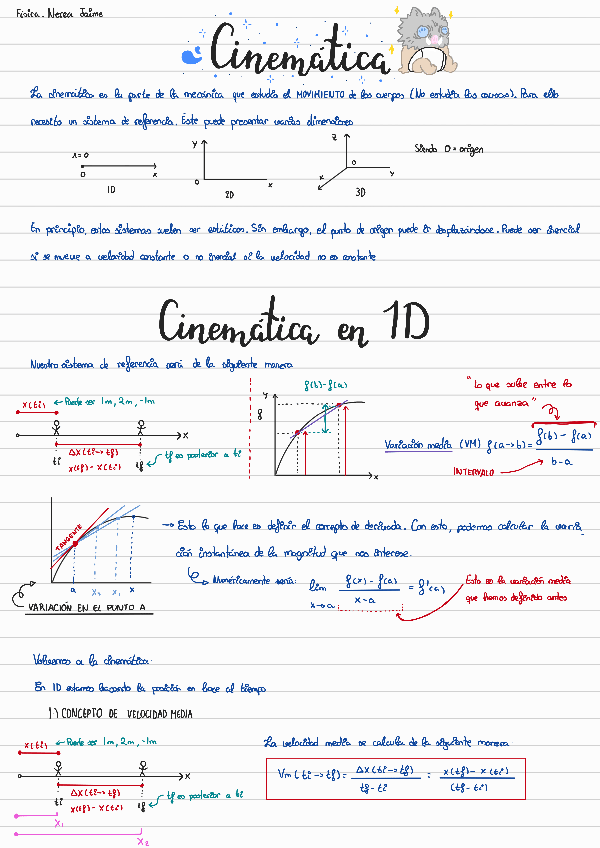 Física. Nerea Jaime
Cinemática
La cinemática es la parte de la mecánica que estudia el MOVIMIENTO de los cuerpos (No estudia las causas). Para ello
necesito un sistema de referencia. Éste puede presentar varias dimensiones
x=0
O
x
1D
y
O
x
2D
z
O
y
x
3D
Siendo O = origen
En principio, estos sistemas suelen ser estáticos. Sin embargo, el punto de origen puede ir desplazándose. Puede ser inercial
si se mueve a velocidad constante o no inercial si la velocidad no es constante
Cinemática en 1D
Nuestro sistema de referencia será de la siguiente manera
x(ti) ← Puede ser 1m, 2m, -1m
x
ti
Δx(ti→tf)
x(tf) - x(ti)
tf
tf es posterior a ti
f(b)-f(a)
y
f
x
"Lo que sube entre lo
que avanza"
Variación media (VM) f(a→b) = f(b) - f(a)
b-a
INTERVALO
TANGENTE
a x₂ x₁ x
VARIACIÓN EN EL PUNTO A
→ Esto lo que hace es definir el concepto de derivada. Con esto, podemos calcular la varia_
ción instantánea de la magnitud que nos interese.
Numéricamente sería: lim f(x) - f(a) = f'(a)
x→a x-a
Esto es la variación media
que hemos definido antes
Volvemos a la cinemática:
En 1D estamos buscando la posición en base al tiempo
1) CONCEPTO DE VELOCIDAD MEDIA
x(ti) ← Puede ser 1m, 2m, -1m
x
ti
Δx(ti→tf)
x(tf) - x(ti)
tf
tf es posterior a ti
x₁
x₂
La velocidad media se calcula de la siguiente manera
Vm (ti→tf) = Δx(ti→tf) = x(tf) - x(ti)
tf-ti (tf-ti)